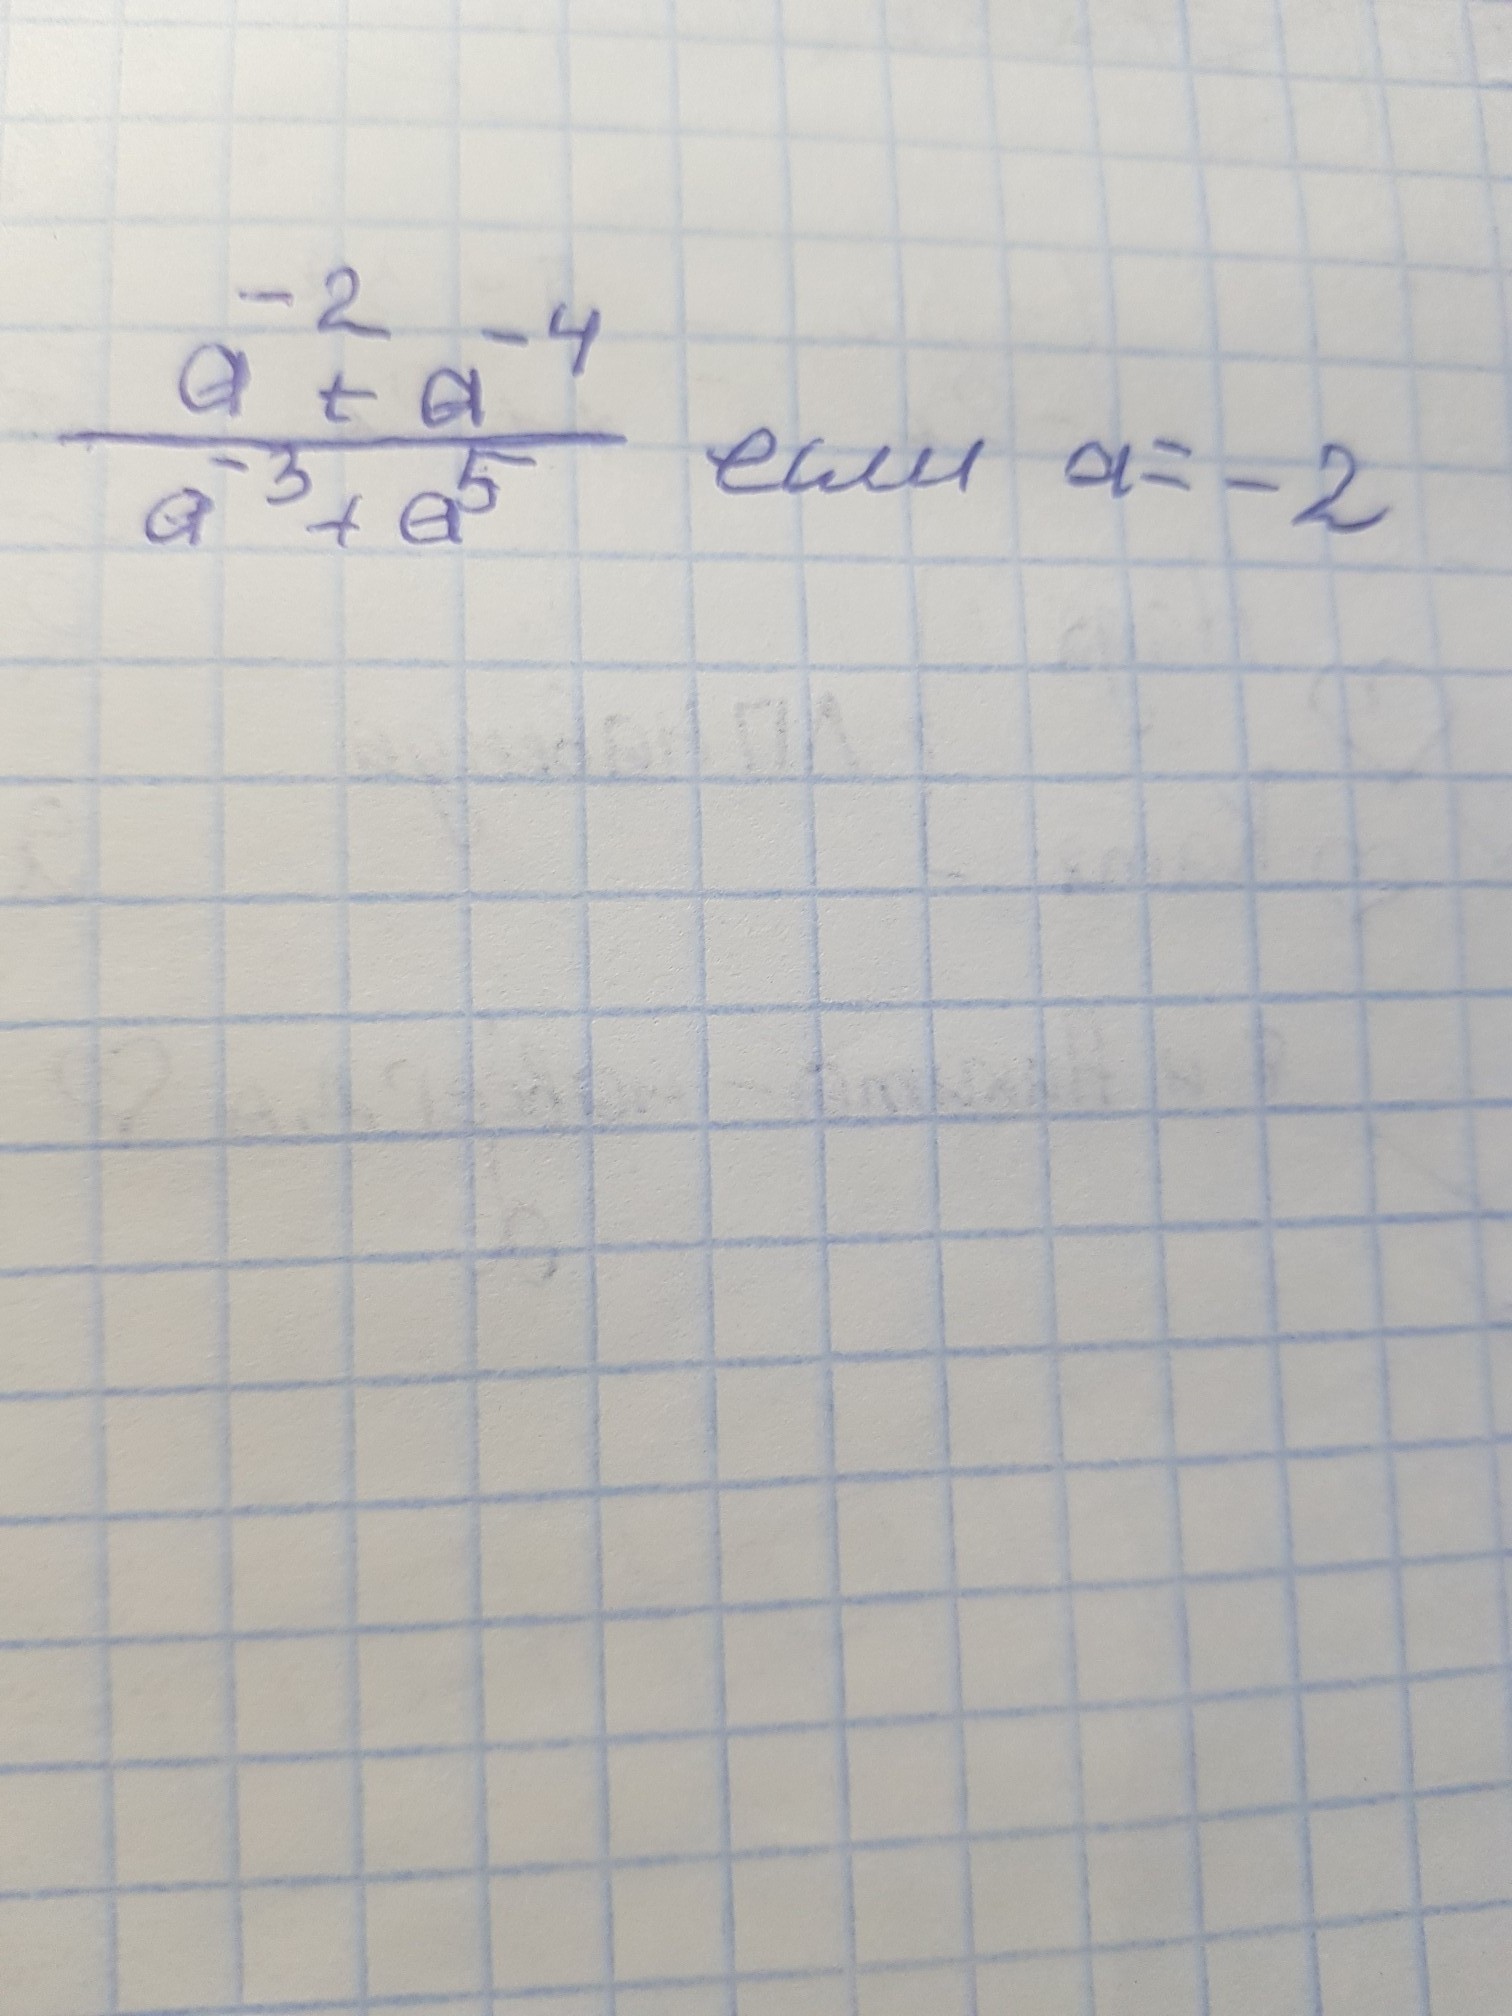 a⁻² + a⁻⁴
a⁻³ + a⁵ если a = -2